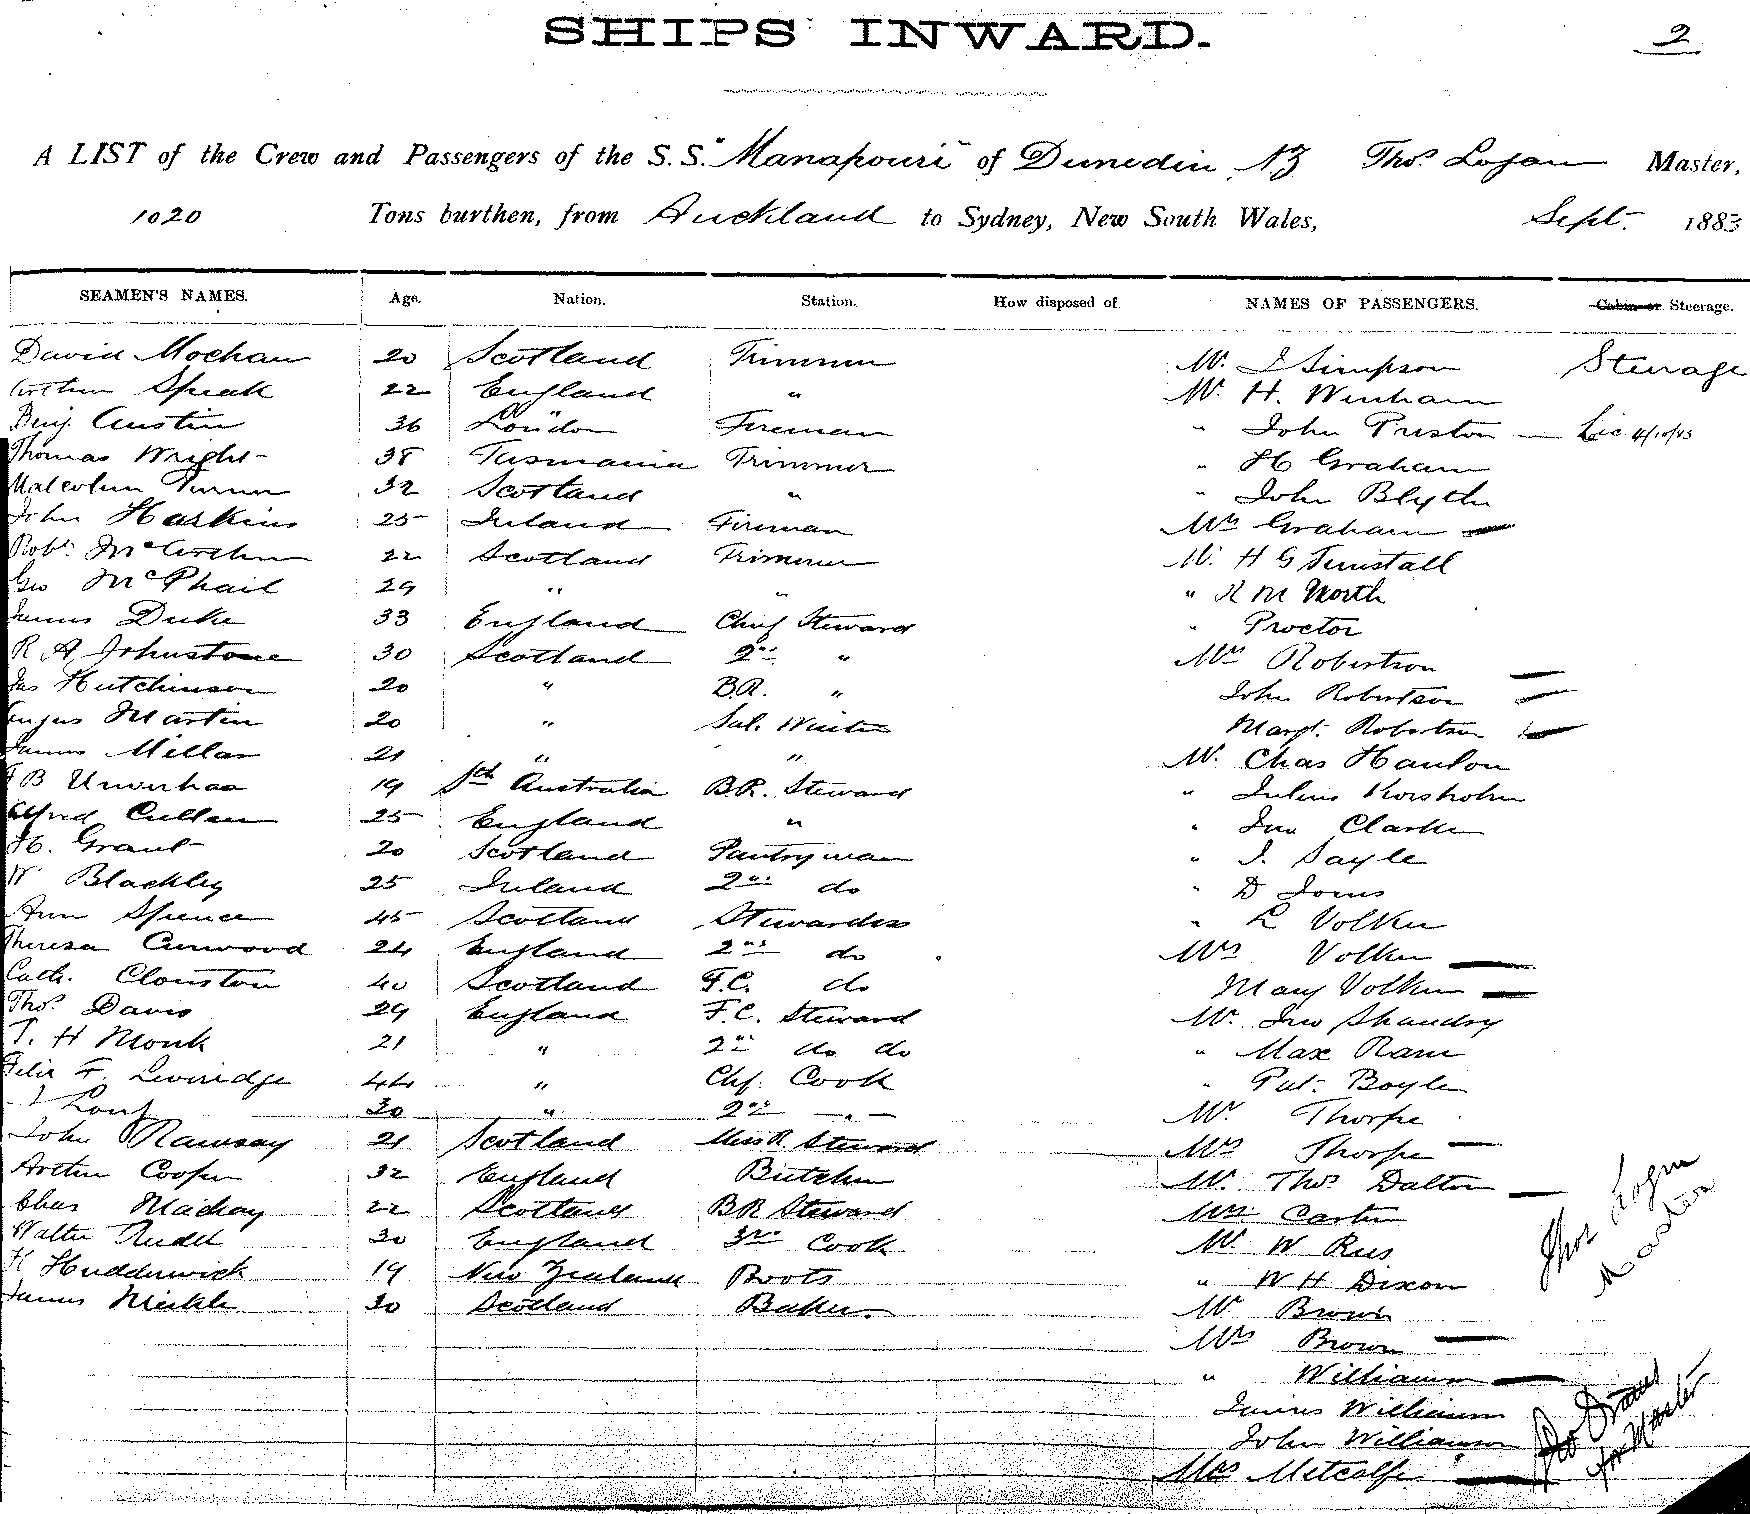 SHIPS INWARD.
2
A LIST of the Crew and Passengers of the S.S. "Manapouri" of Dunedin NZ Thos. Logan Master,
1020 Tons burthen, from Auckland to Sydney, New South Wales, Sept. 1883
SEAMEN'S NAMES. Age. Nation. Station. How disposed of. NAMES OF PASSENGERS. Cabin or Steerage.
David Mochan 20 Scotland Trimmer Mr. J Simpson Steerage
Arthur Speak 22 England " Mr. H. Wenham
Benj. Austin 36 London Fireman " John Preston — 4/10/83
Thomas Wright 38 Tasmania Trimmer " H Graham
Malcolm Turner 32 Scotland " " John Blyth
John Harkins 25 Ireland Fireman Mrs Graham —
Robt. McArthur 22 Scotland Trimmer Mr. H G Tunstall
Geo McPhail 29 " " " R M North
James Duke 33 England Chief Steward " Proctor
R A Johnstone 30 Scotland 2nd " Mrs Robertson —
Jas Hutchinson 20 " B.R. " John Robertson —
Angus Martin 20 " Sal. Waiter Margt. Robertson —
James Millar 21 " " Mr. Chas Hanlon
B 19 Sth Australia B.R. Steward " Julius Korsholm
Alfred Cullen 25 England " " Jno Clarke
H. Grant 20 Scotland Pantryman " J. Sayle
W Blackley 25 Ireland 2nd do " D Jones
Ann Spence 45 Scotland Stewardess " L Volker
Theresa Curwood 24 England 2nd do Mrs Volker —
Cath. Clouston 40 Scotland F.C. do Mary Volker —
Thos. Davis 29 England F.C. Steward Mr. Jno Shandry
T. H Monk 21 " 2nd do do " Max Ram
Felix F. Leveridge 44 " Chf. Cook " Pat. Boyle
J Long 30 " 2nd - " - Mr. Thorpe
John Ramsay 21 Scotland Mess R. Steward Mrs Thorpe —
Arthur Cooper 32 England Butcher Mr. Thos Dalton —
Chas Mackay 22 Scotland BR Steward Mrs Carter
Walter Rudd 30 England 3rd Cook Mr. W Rees
H Hudderwick 19 New Zealand Boots " W H Dixon
James Meikle 30 Scotland Baker. Mr Brown
Mrs Brown —
" Williamson —
James Williamson
John Williamson
Mrs Metcalfe —
Thos Logan
Master
for Master